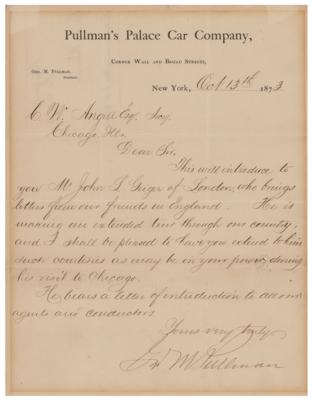 Pullman's Palace Car Company,
Corner Wall and Broad Streets,
Geo. M. Pullman,
President.
New York, Oct 13th 1873
C. W. Angell Esq. Secy.
Chicago, Ills.
Dear Sir.
This will introduce to
you Mr John L Geiger of London, who brings
letters from our friends in England. He is
making an extended tour through our country,
and I shall be pleased to have you extend to him
such courtesies as may be in your power, during
his visit to Chicago.
He bears a letter of introduction to all our
agents and conductors.
Yours very truly
Geo M Pullman